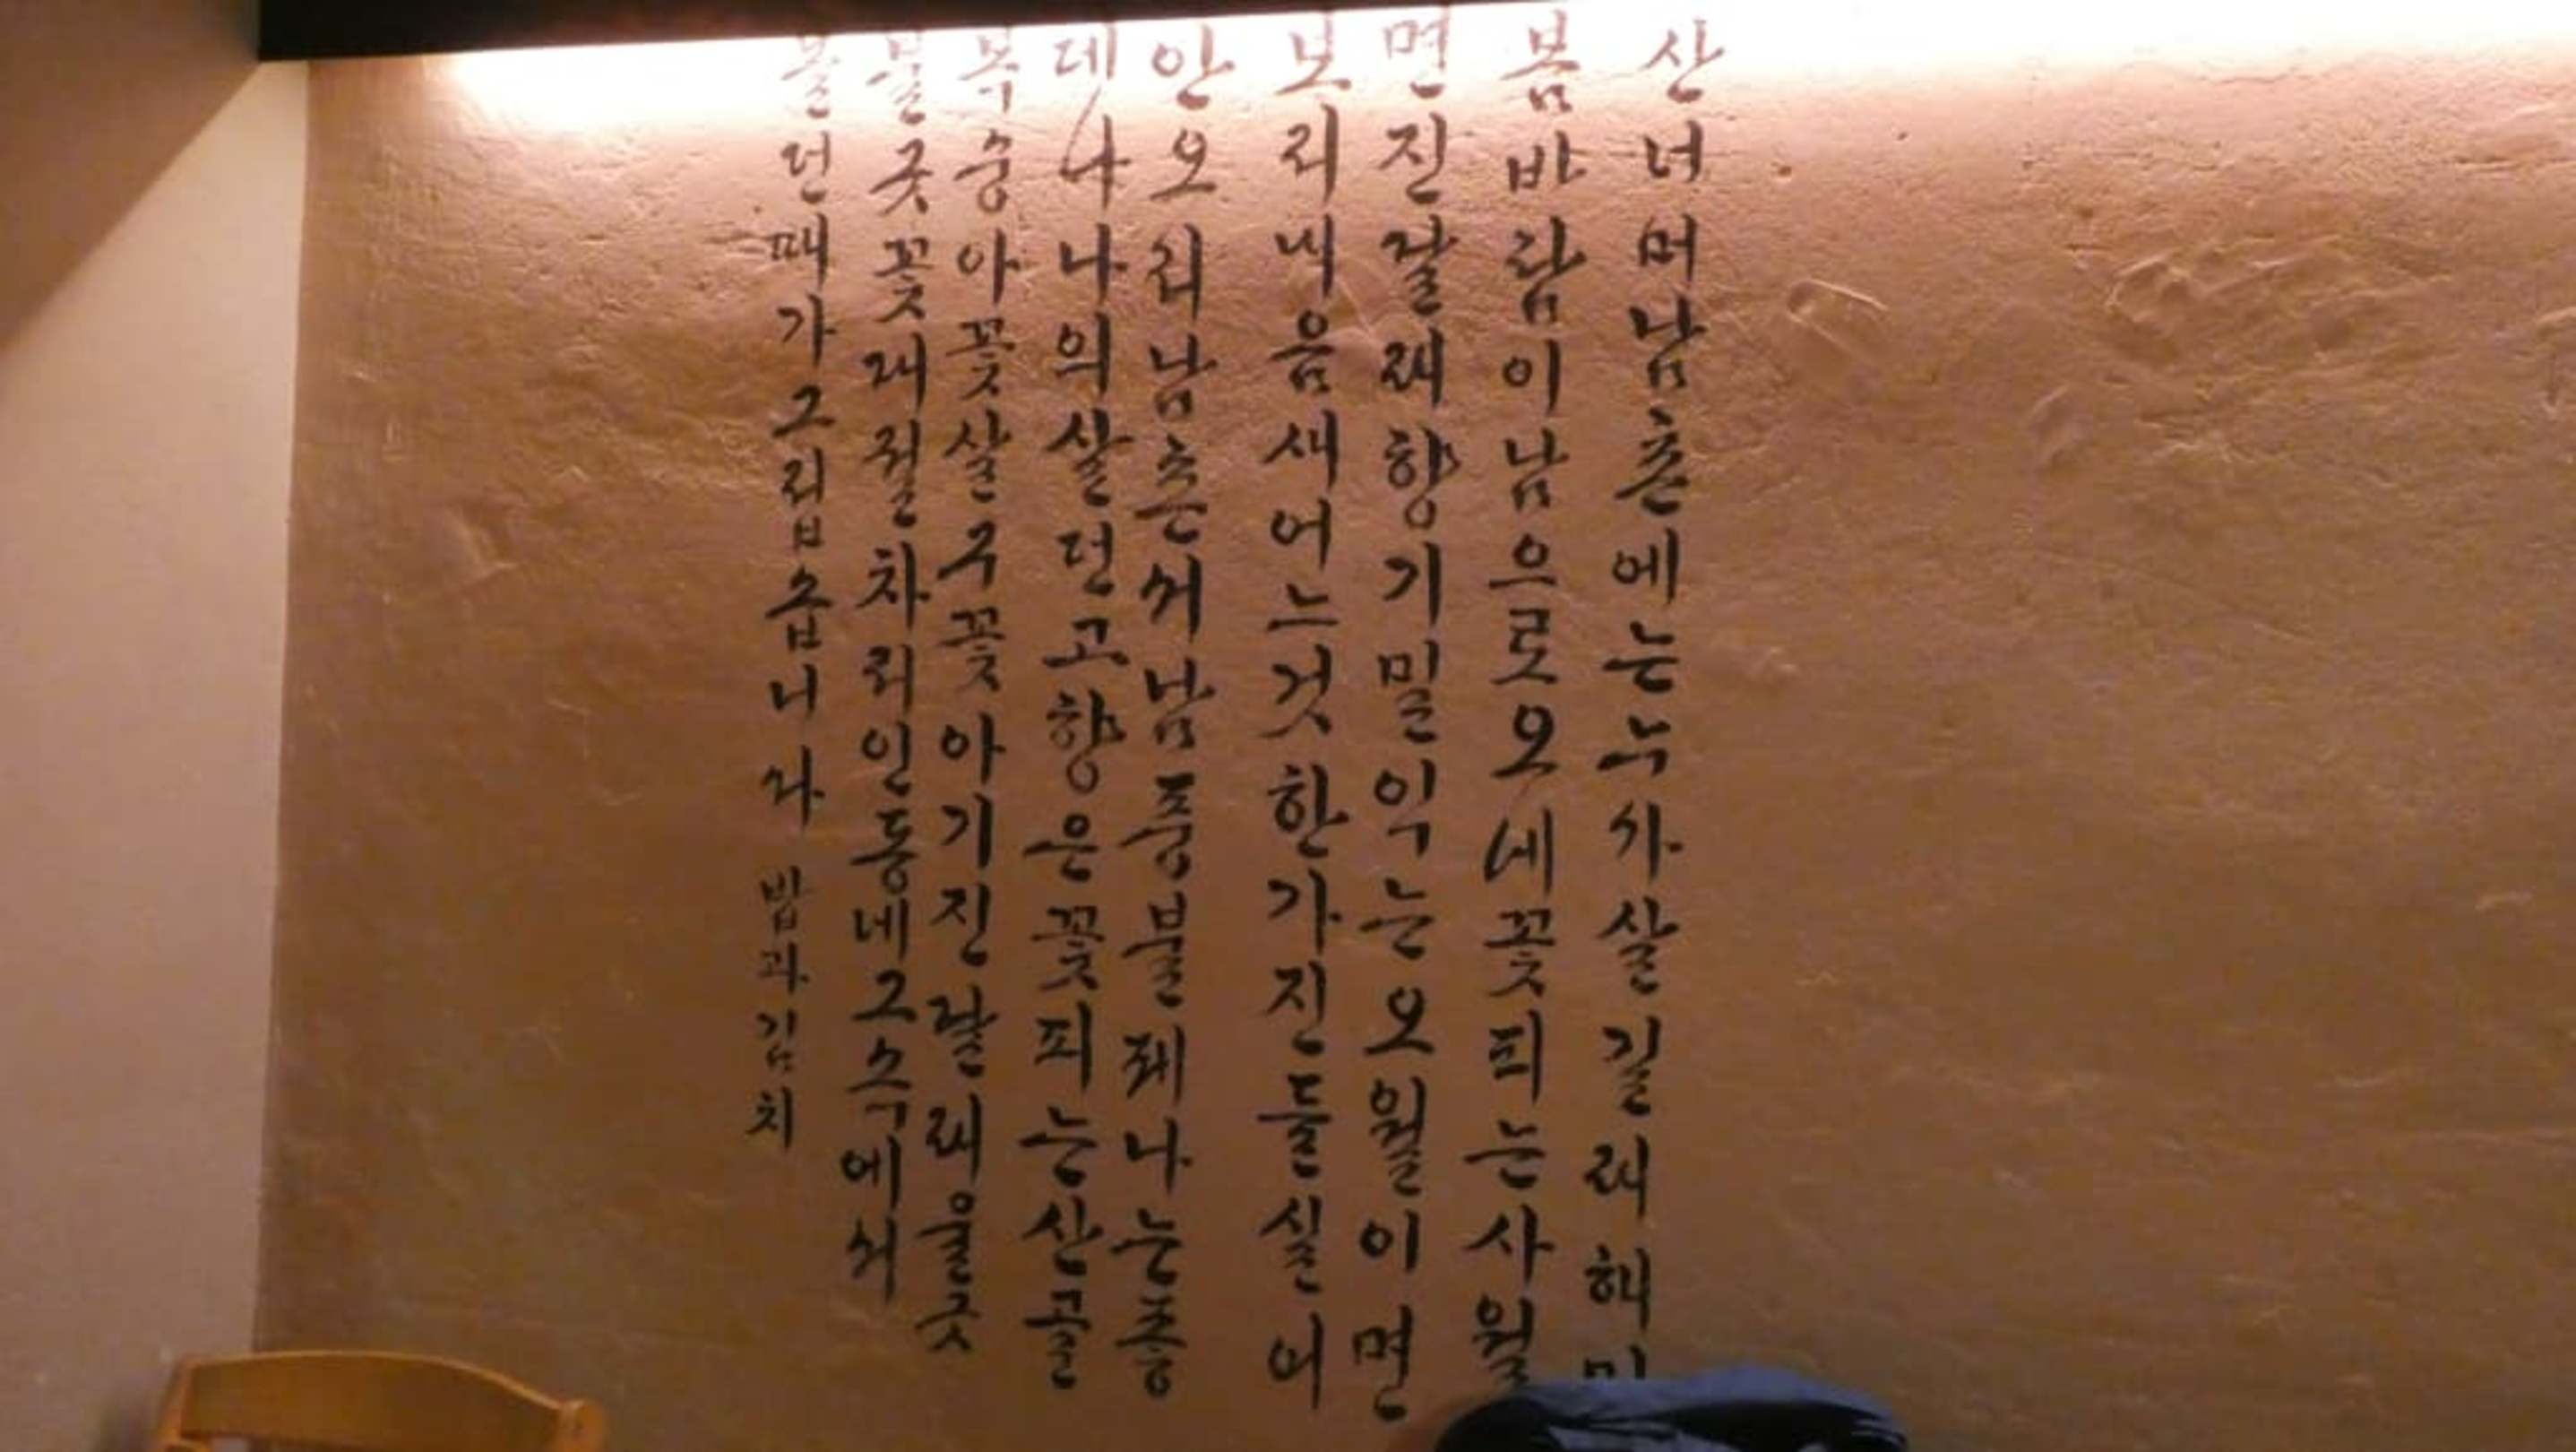 산너머남촌에는누가살길래해
봄바람이남으로오네꽃피는사월
면진달래향기밀익는오월이면
보리내음새어느것한가진들실어
안오리남촌서남풍불제나는좋
데나 나의살던고향은꽃피는산골
복숭아꽃살구꽃아기진달래울긋
불긋꽃대궐차리인동네그속에서
놀던때가그립습니다 밥과김치